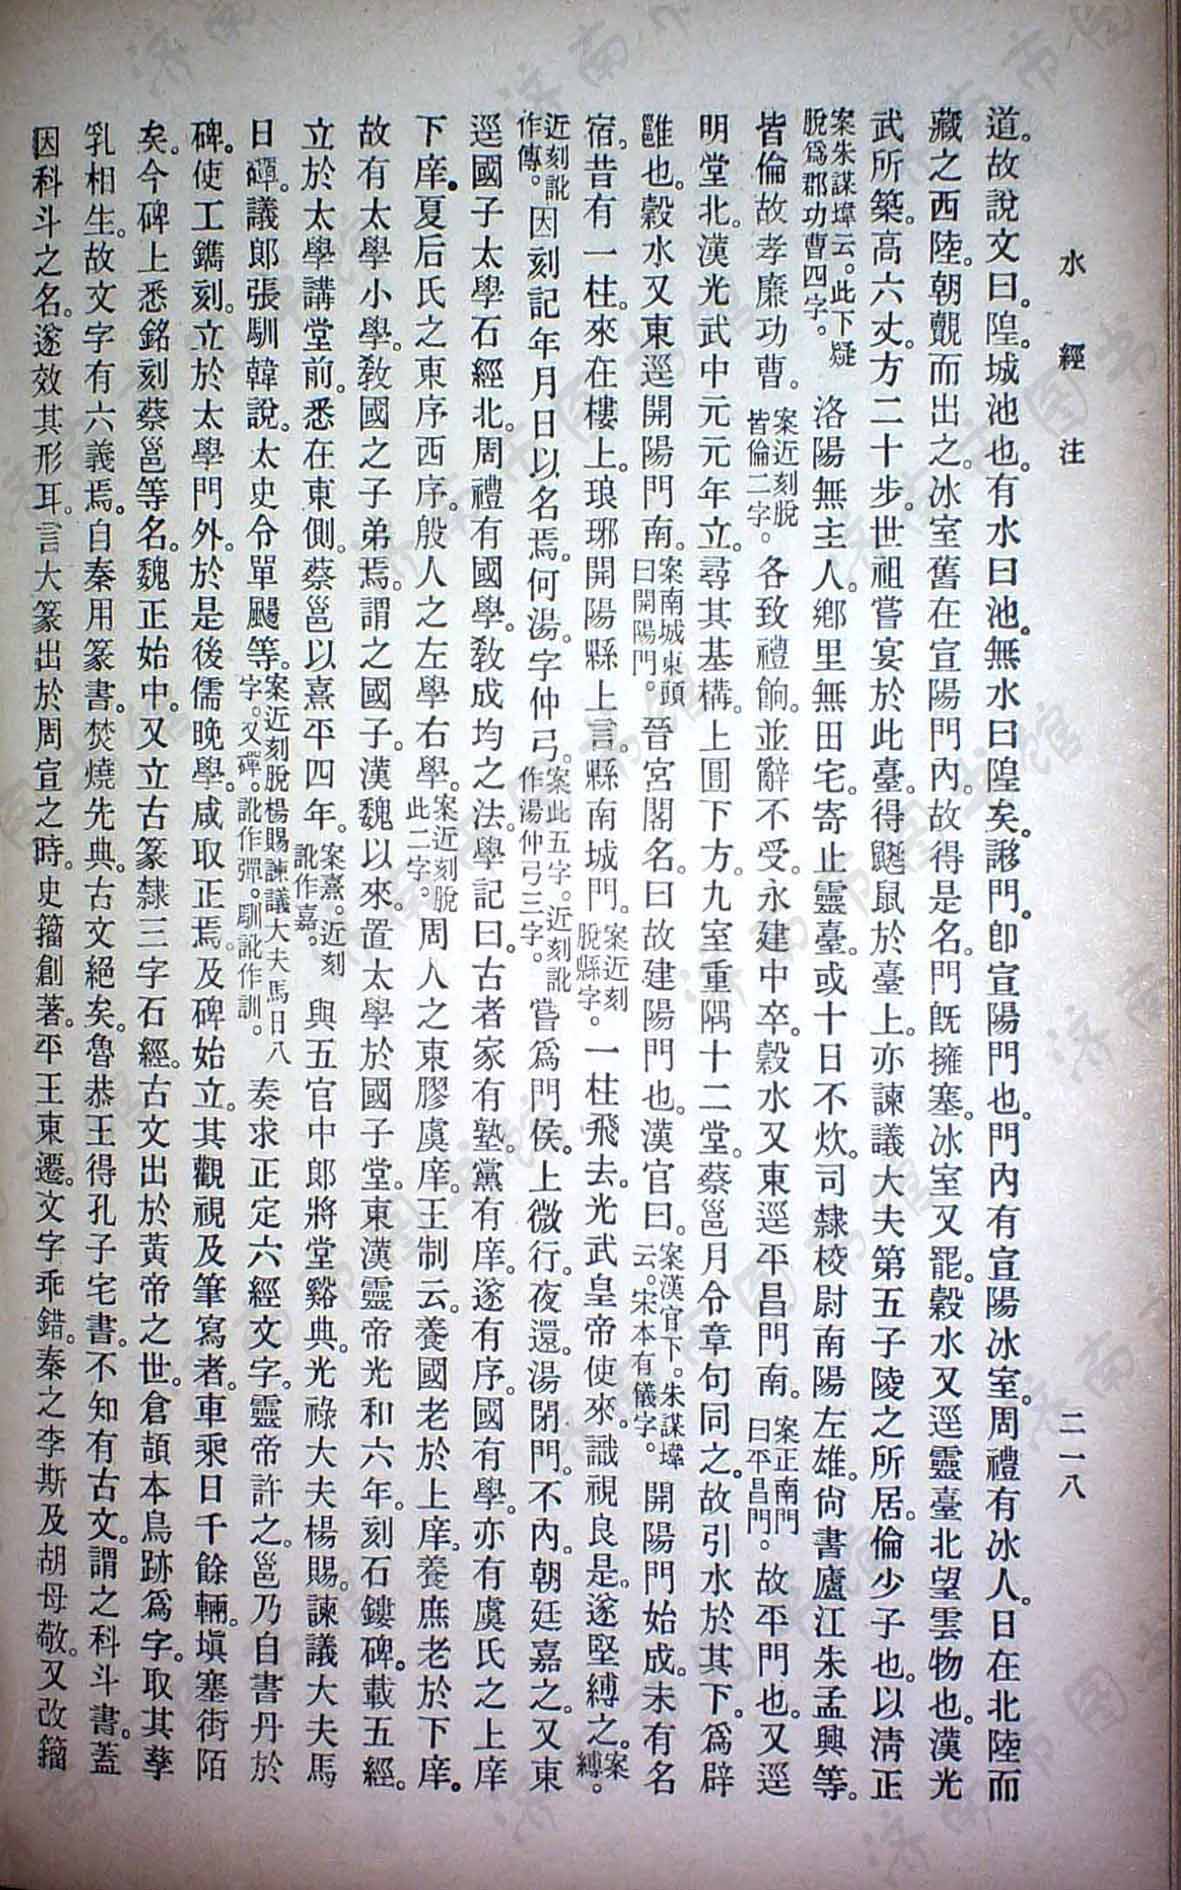 水經注
二一八
道。故說文曰。隍。城池也。有水曰池。無水曰隍矣。謻門。卽宣陽門也。門內有宣陽冰室。周禮有冰人。日在北陸而
藏之西陸。朝覿而出之。冰室舊在宣陽門內。故得是名。門旣擁塞。冰室又罷。穀水又逕靈臺北望雲物也。漢光
武所築。高六丈。方二十步。世祖嘗宴於此臺。得鼮鼠於臺上。亦諫議大夫第五子陵之所居。倫少子也。以淸正
案朱謀㙔云。此下疑脫爲郡功曹四字。洛陽無主人。鄉里無田宅。寄止靈臺。或十日不炊。司隸校尉南陽左雄。尙書廬江朱孟興等。
皆倫故孝廉功曹。案近刻脫皆倫二字。各致禮餉。並辭不受。永建中卒。穀水又東逕平昌門南。案正南門曰平昌門。故平門也。又逕
明堂北。漢光武中元元年立。尋其基構。上圓下方。九室重隅十二堂。蔡邕月令章句同之。故引水於其下。爲辟
雝也。穀水又東逕開陽門南。案南城東頭曰開陽門。晉宮閣名。曰故建陽門也。漢官曰。案漢官下。朱謀㙔云。宋本有儀字。開陽門始成。未有名
宿。昔有一柱。來在樓上。琅琊開陽縣上言。縣南城門。案近刻脫縣字。一柱飛去。光武皇帝使來。識視良是。遂堅縛之。案縛。
近刻訛作傳。因刻記年月日以名焉。何湯。字仲弓。案此五字。近刻訛作湯仲弓三字。嘗爲門侯。上微行。夜還。湯閉門。不內。朝廷嘉之。又東
逕國子太學石經北。周禮有國學。敎成均之法。學記曰。古者家有塾。黨有庠。遂有序。國有學。亦有虞氏之上庠
下庠。夏后氏之東序西序。殷人之左學右學。案近刻脫此二字。周人之東膠虞庠。王制云。養國老於上庠。養庶老於下庠。
故有太學小學。敎國之子弟焉。謂之國子。漢魏以來。置太學於國子堂。東漢靈帝光和六年。刻石鏤碑。載五經。
立於太學講堂前。悉在東側。蔡邕以熹平四年。案熹。近刻訛作嘉。與五官中郎將堂谿典。光祿大夫楊賜。諫議大夫馬
日磾。議郎張馴韓說。太史令單颺等。案近刻脫楊賜諫議大夫馬日八字。又磾。訛作彈。馴訛作訓。奏求正定六經文字。靈帝許之。邕乃自書丹於
碑。使工鐫刻。立於太學門外。於是後儒晚學。咸取正焉。及碑始立。其觀視及筆寫者。車乘日千餘輛。塡塞街陌
矣。今碑上悉銘刻蔡邕等名。魏正始中。又立古篆隸三字石經。古文出於黃帝之世。倉頡本鳥跡爲字。取其孳
乳相生。故文字有六義焉。自秦用篆書。焚燒先典。古文絕矣。魯恭王得孔子宅書。不知有古文。謂之科斗書。蓋
因科斗之名。遂效其形耳。言大篆出於周宣之時。史籀創著。平王東遷。文字乖錯。秦之李斯及胡母敬。又改籀